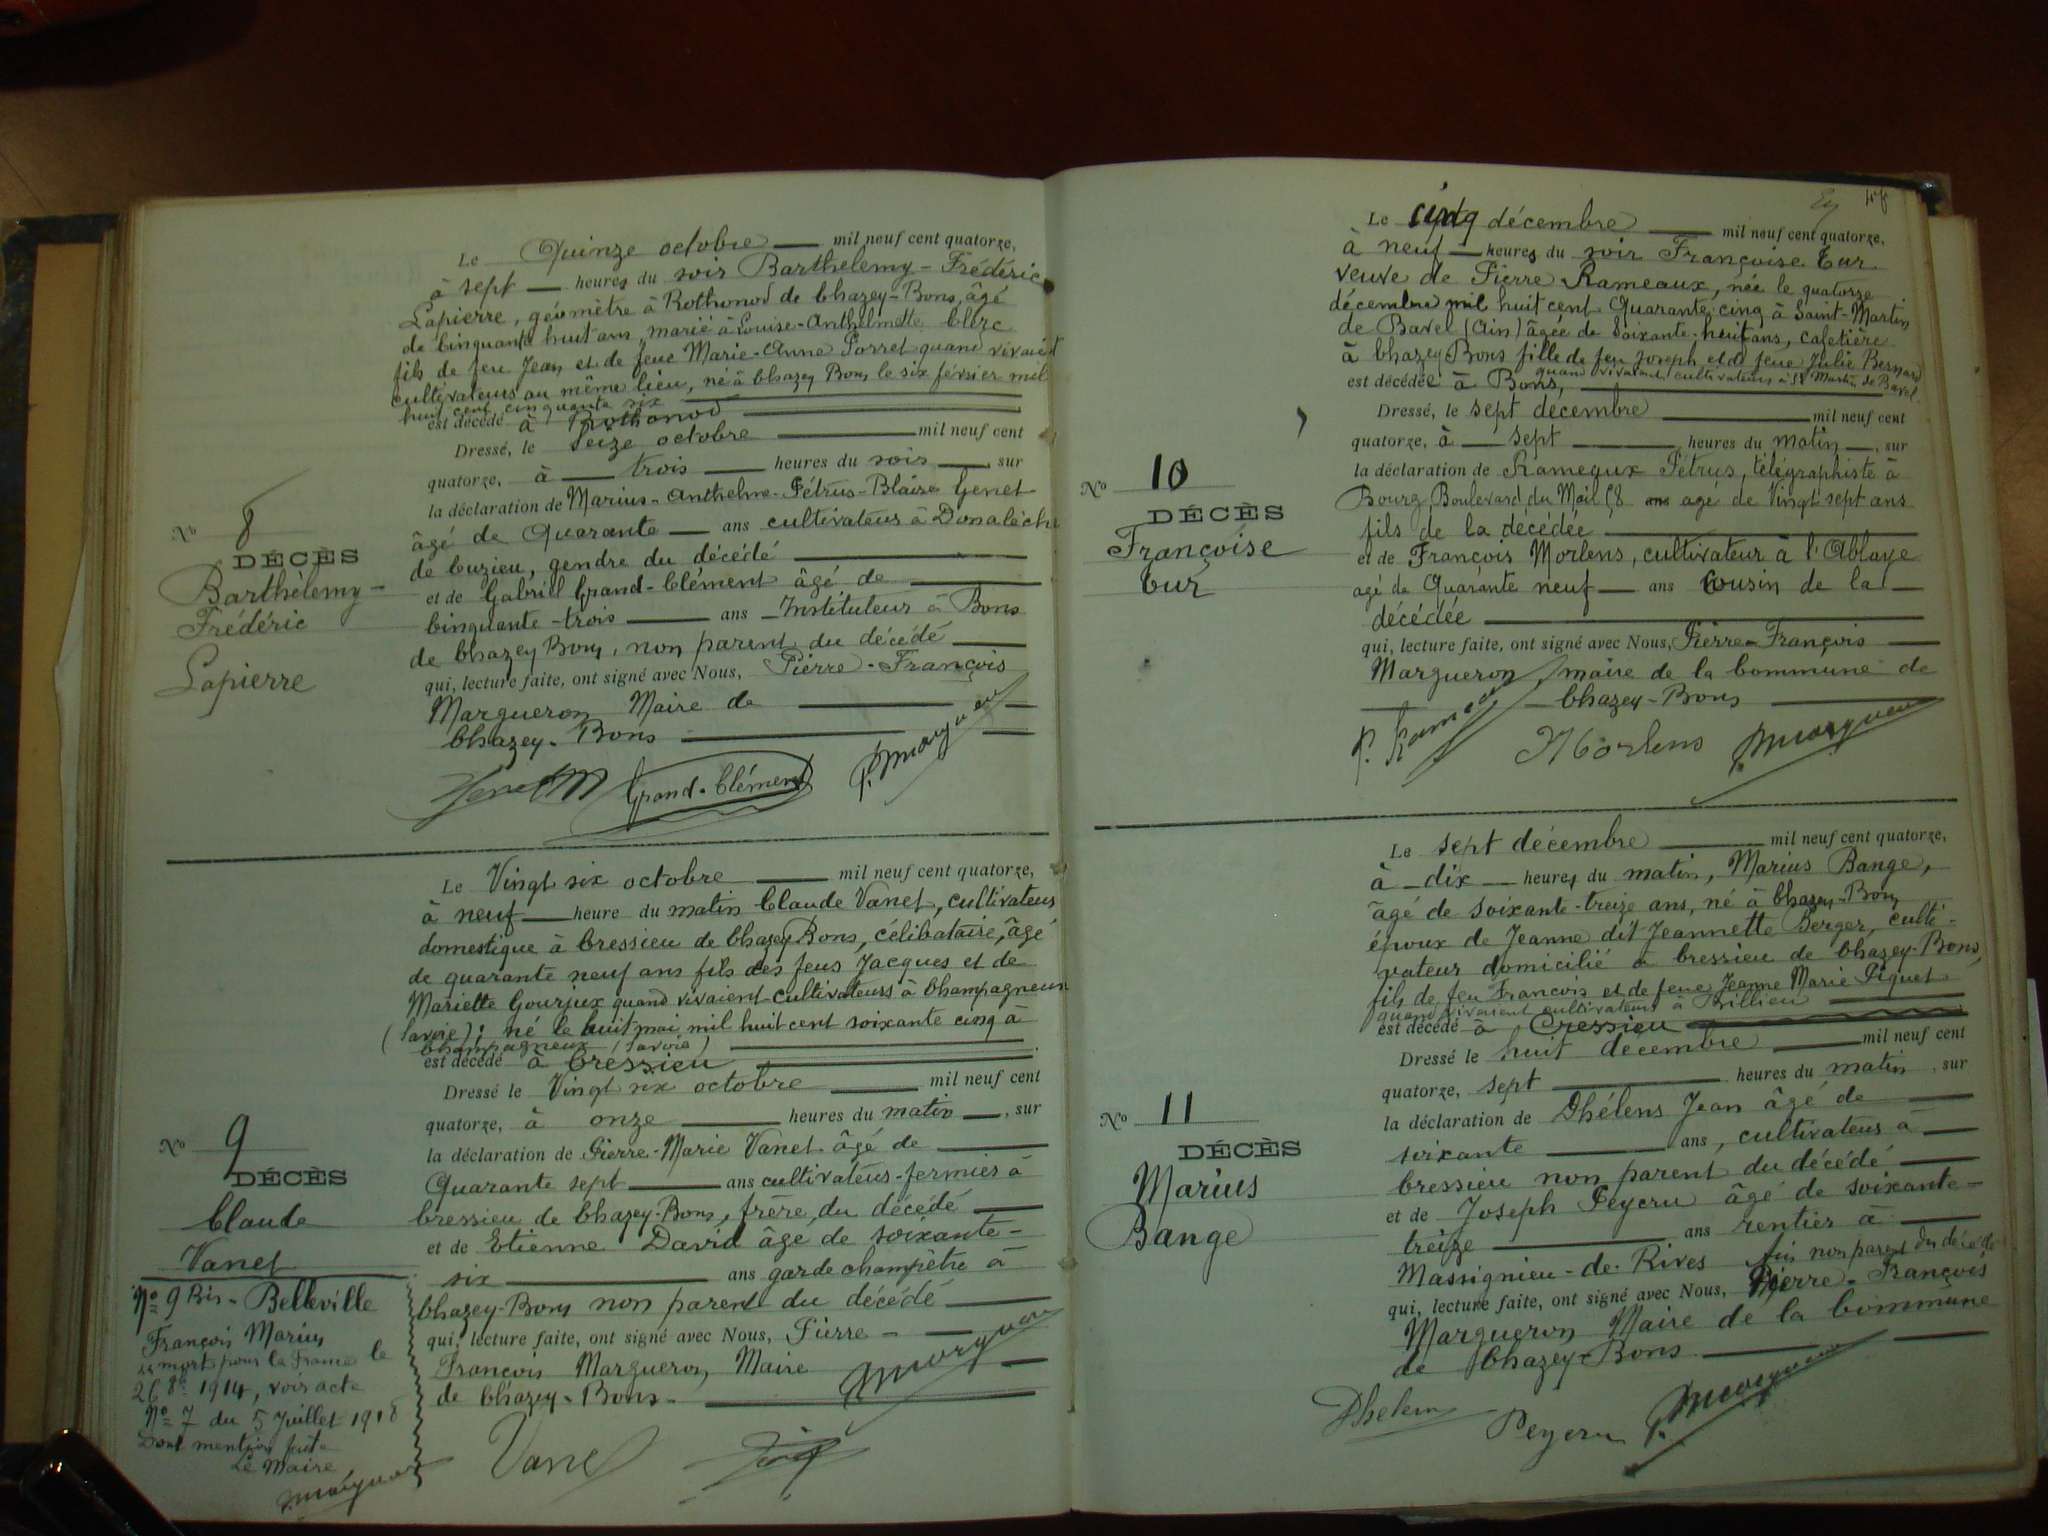 Le Quinze octobre mil neuf cent quatorze,
à sept heures du soir Barthélemy-Frédéric
Lapierre, géomètre à Rothonod de Chazey-Bons, âgé
de Cinquante huit ans, marié à Louise-Anthelmette Clerc
fils de feu Jean et de feue Marie-Anne Porret quand vivaient
cultivateurs au même lieu, né à Chazey Bons le six février mil
huit cent cinquante six
est décédé à Rothonod
Dressé, le Seize octobre mil neuf cent
quatorze, à trois heures du soir, sur
la déclaration de Marius-Anthelme-Pétrus-Blaise Genet
âgé de Quarante ans cultivateur à
de Cuzieu, gendre du décédé
et de Gabriel Grand-Clément âgé de
Cinquante-trois ans Instituteur à Bons
de Chazey Bons, non parent du décédé
qui, lecture faite, ont signé avec Nous, Pierre-François
Margueron Maire de
Chazey-Bons
Genet M Grand-Clément P. Margueron
No 8
DÉCÈS
Barthélemy-
Frédéric
Lapierre
Le Vingt six octobre mil neuf cent quatorze,
à neuf heure du matin Claude Vanet, cultivateur
domestique à Cressieu de Chazey Bons, célibataire, âgé
de quarante neuf ans fils des feus Jacques et de
Mariette Gourjux quand vivaient cultivateurs à Champagneux
(Savoie); né le huit mai mil huit cent soixante cinq à
Champagneux (Savoie)
est décédé à Cressieu
Dressé le Vingt six octobre mil neuf cent
quatorze, à onze heures du matin, sur
la déclaration de Pierre-Marie Vanet âgé de
Quarante sept ans cultivateur-fermier à
Cressieu de Chazey-Bons, frère du décédé
et de Etienne David âgé de soixante-
six ans garde champêtre à
Chazey-Bons non parent du décédé
qui, lecture faite, ont signé avec Nous, Pierre-
François Margueron Maire
de Chazey-Bons.
Margueron
Vanet
No 9
DÉCÈS
Claude
Vanet
No 9 Bis - Belleville
François Marius
mort pour la France le
26 8bre 1914, voir acte
No 7 du 5 Juillet 1918
Dont mention faite
Le Maire
Margueron
Le cinq décembre mil neuf cent quatorze,
à neuf heures du soir Françoise Cur
veuve de Pierre Rameaux, née le quatorze
décembre mil huit cent Quarante cinq à Saint-Martin
de Bavel (Ain) âgée de Soixante-huit ans, cafetière
à Chazey-Bons fille de feu Joseph et de feue Julie Bernard
quand vivaient cultivateurs à St Martin de Bavel
est décédée à Bons,
Dressé, le sept décembre mil neuf cent
quatorze, à sept heures du matin, sur
la déclaration de Rameaux Pétrus, télégraphiste à
Bourg, Boulevard du Mail 18 agé de Vingt sept ans
fils de la décédée
et de François Morlens, cultivateur à l'Abbaye
agé de Quarante neuf ans Cousin de la
décédée
qui, lecture faite, ont signé avec Nous, Pierre-François
Margueron, maire de la Commune de
Chazey-Bons
P. Rameaux Morlens P. Margueron
No 10
DÉCÈS
Françoise
Cur
Le sept décembre mil neuf cent quatorze,
à dix heures du matin, Marius Bange,
âgé de soixante-treize ans, né à Chazey-Bons
époux de Jeanne dit Jeannette Berger, culti-
vateur domicilié à Cressieu de Chazey-Bons,
fils de feu François et de feue Jeanne Marie Piquet
quand vivaient cultivateurs à Thillieu
est décédé à Cressieu
Dressé le huit décembre mil neuf cent
quatorze, sept heures du matin, sur
la déclaration de Dhélens Jean âgé de
soixante ans, cultivateur à
Cressieu non parent du décédé
et de Joseph Peycru âgé de soixante-
treize ans rentier à
Massignieu-de-Rives non parent du décédé
qui, lecture faite, ont signé avec Nous, Pierre-François
Margueron Maire de la Commune
de Chazey-Bons
Dhelens Peycru P. Margueron
No 11
DÉCÈS
Marius
Bange